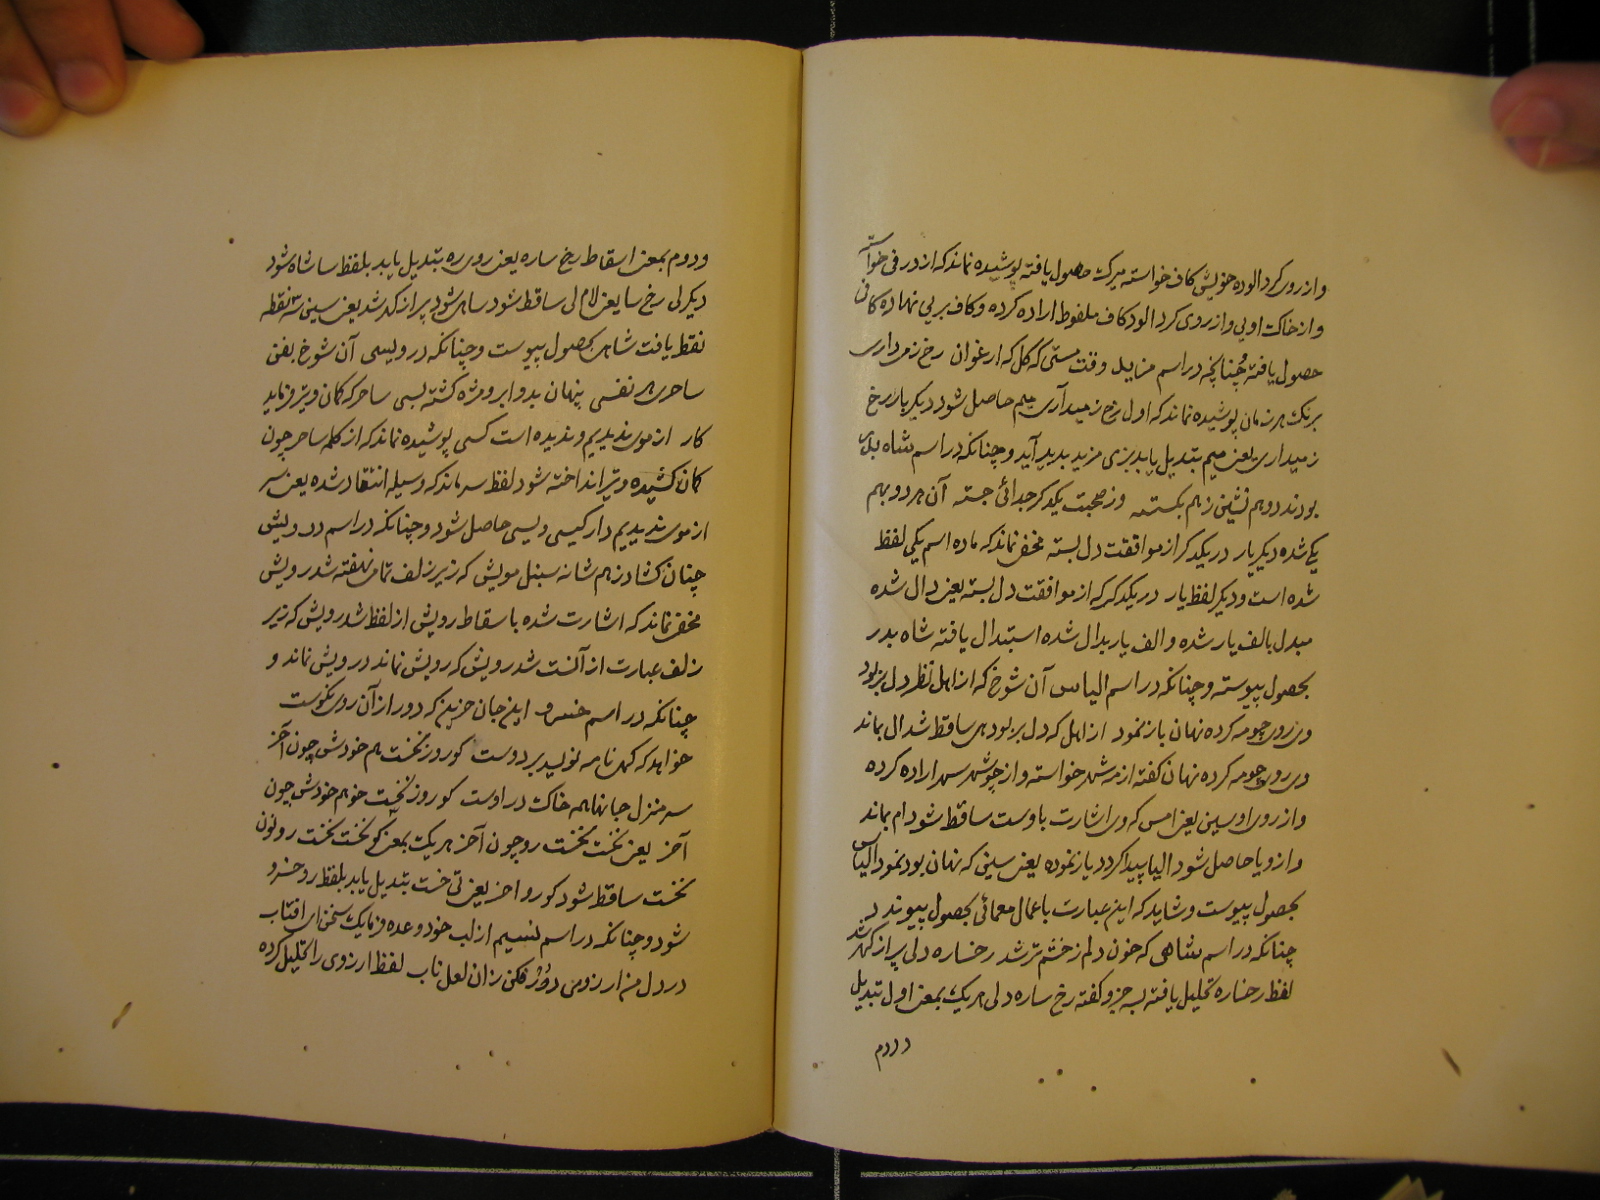 واز روی کرد الوده خویش کاف خواسته برک حصول یافته پوشیده نماند که از در فی خواسته
واز خاک اویی واز روی کرد الود کاف ملفوظ اراده کرده وکاف بریی نهاده کافی
حصول یافته چنانچه در اسم مزاید وقت مستی که کل که ارغوان رخ زمی داری
برنک هر زمان پوشیده نماند که اول رخ زمیداری میم حاصل شود دیکر بار رخ
زمیداری یعنی میم تبدیل یابد بزی مزید بدید آید وچنانکه در اسم شاه بلی
بودند دو هم نشین زهم بکسته وز صحبت یکدکر جدائی جسته آن هر دو بهم
یکی شده دیکر یار در یکدکر از موافقت دل بسته مخفی نماند که ماده اسم یکی لفظ
شده است ودیکر لفظ یار در یکدکر که از موافقت دل بسته یعنی دال شده
مبدل بالف یار شده والف یار بدال شده استبدال یافته شاه بدر
بحصول پیوسته وچنانکه در اسم الیاس آن شوخ که از اهل نظر دل بربود
وی روی چو مه کرده نهان باز نمود از اهل که دل بربود هی ساقط شد ال بماند
وی روی چو مه کرده نهان کفته از مه شهر خواسته واز چو شهر سهر اراده کرده
واز روی او سین یعنی امس که وی اشارت باوست ساقط شود ام بماند
واز و یا حاصل شود الیا پیدا کردد باز نموده یعنی سینی که نهان بود نمود الیاس
بحصول پیوست وشاید که این عبارت باعمال معمائی بحصول پیوندد
چنانکه در اسم شاهی که خون دلم ز خشم تر شد رخساره دلی پر از کهر شد
لفظ رخساره تحلیل یافته بسه جزو کفته رخ ساره دلی هر یک بمعنی اول تبدیل
ودوم
ودوم بمعنی اسقاط رخ ساره یعنی روی ره تبدیل یابد بلفظ سا شاه شود
دیکر لی رخ سا یعنی لام لی ساقط شود ساهی شود پر از کهر شد یعنی سین سه نقطه
نقط یافت شاهی بحصول پیوست وچنانکه در ویسی آن شوخ بفن
ساحری هر نفسی پنهان بدو ابرو مژه کشته بسی ساحر که کمان وتیر فرماید
کار از موی ندیدیم وندیده است کسی پوشیده نماند که از کلمه ساحر چون
کمان کشیده وتیر انداخته شود لفظ سه ماند که وسیله انتقاد شده یعنی سه
از موی ندیدیم دار کیسی ویسی حاصل شود وچنانکه در اسم درویش
چنان کشاد زهم شانه سنبل مویش که زیر زلف تمامی نهفته شد رویش
مخفی نماند که اشارت شده باسقاط رویش از لفظ شد رویش که زیر
زلف عبارت از آنست شد رویش که رویش نماند درویش نماند و
چنانکه در اسم خسرو این جان حزین که دور از آن روی نکوست
خواهد که کهی نامه نویسد بر دوست کو روز نخست هم خودش چون آخر
سر منزل جانها همه خاک در اوست کو روز نخست خو هم خودش چون
آخر یعنی نخت نخت رو چون آخر هر یک بمعنی کو نخت نخت رو نون
نخت ساقط شود کو رو اخر یعنی تی خت تبدیل یابد بلفظ رو خسرو
شود وچنانکه در اسم نسیم از لب خود وعده فرما یک سخن ای افتاب
در دل من ارزوی دور فکن زان لعل ناب لفظ ارزوی را تحلیل کرده